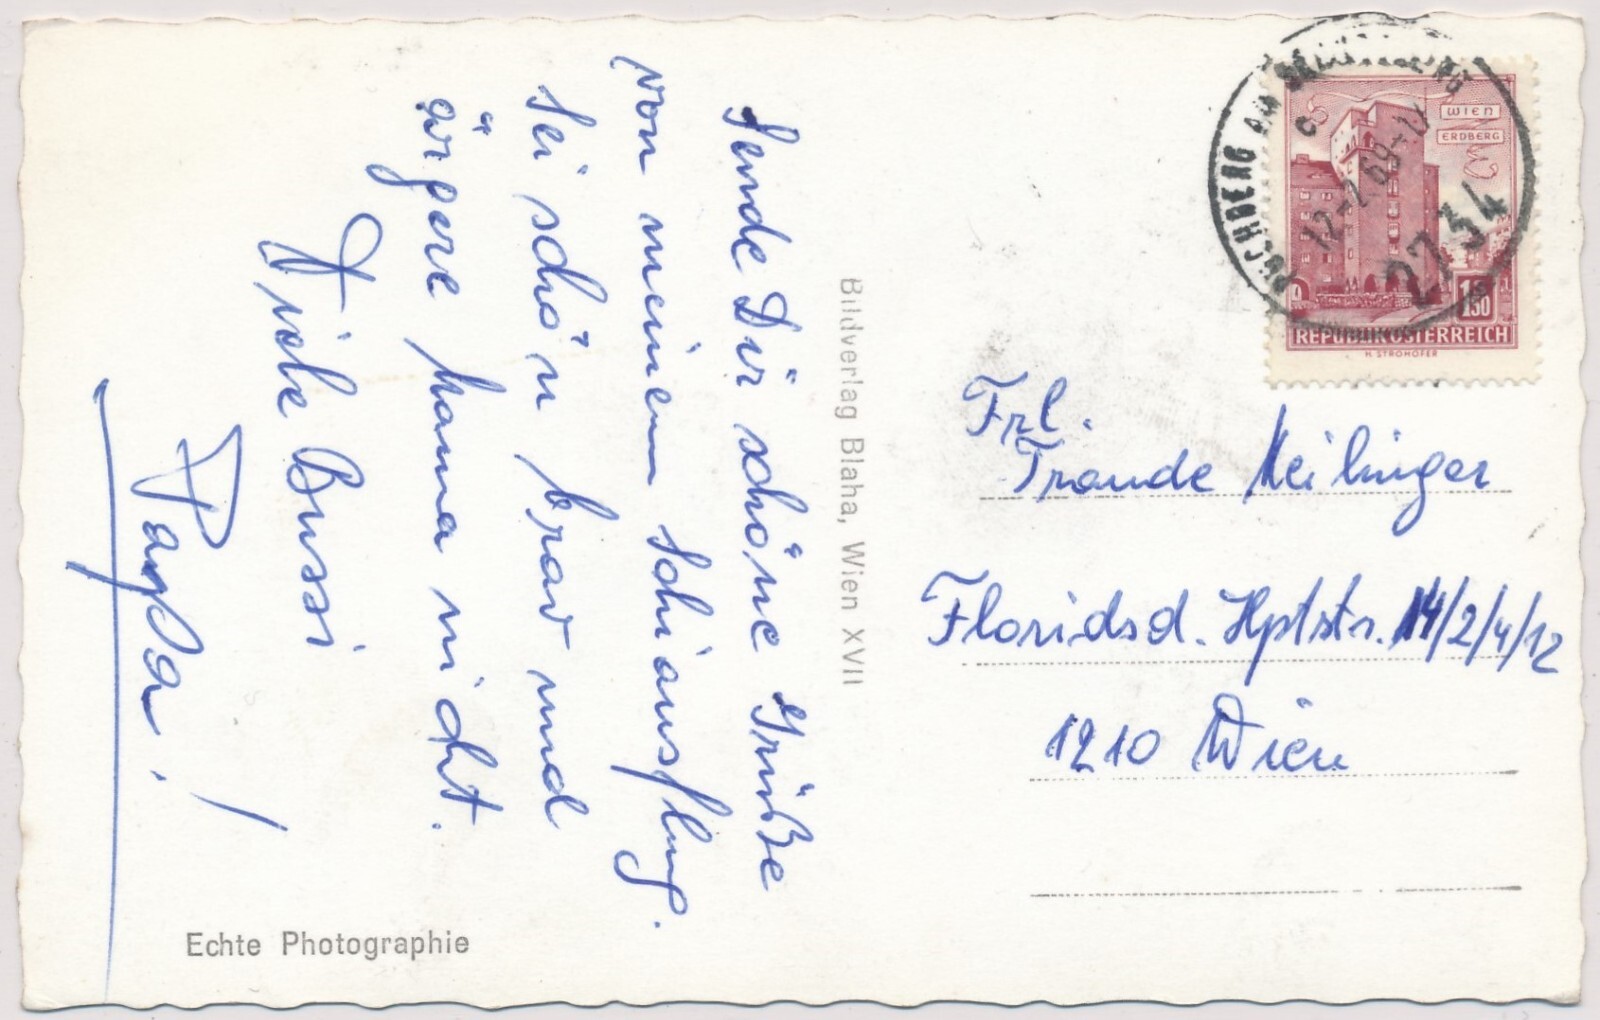 Sende Dir schöne Grüße
von meinem Schiausflug.
Sei schön brav und
ärgere Mama nicht.
Viele Bussi
Pappa!
Echte Photographie
Bildverlag Blaha, Wien XVII
WIEN
ERDBERG
1.50
REPUBLIK ÖSTERREICH
H. STROHOFER
PUCHBERG AM SCHNEEBERG
2734
Frl.
Traude Meilinger
Floridsd. Hptstr. 14/2/4/12
1210 Wien